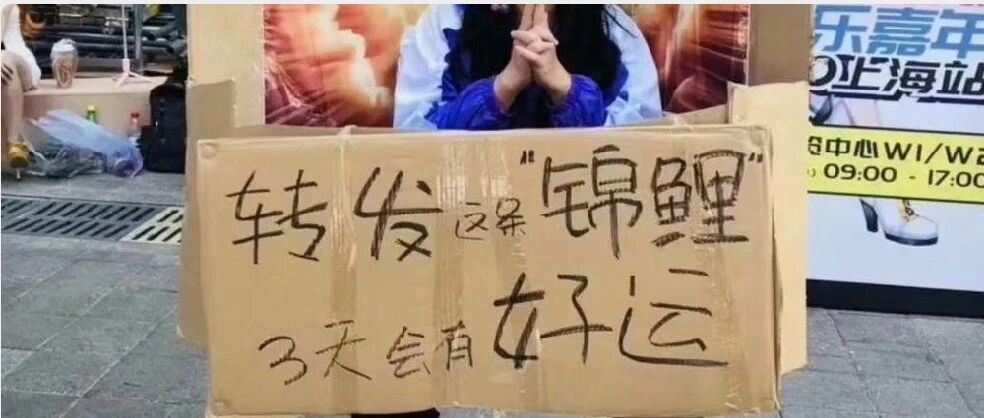 转发这条"锦鲤"
3天会有好运
乐嘉年
上海站
中心W1/W2
09:00 - 17:00